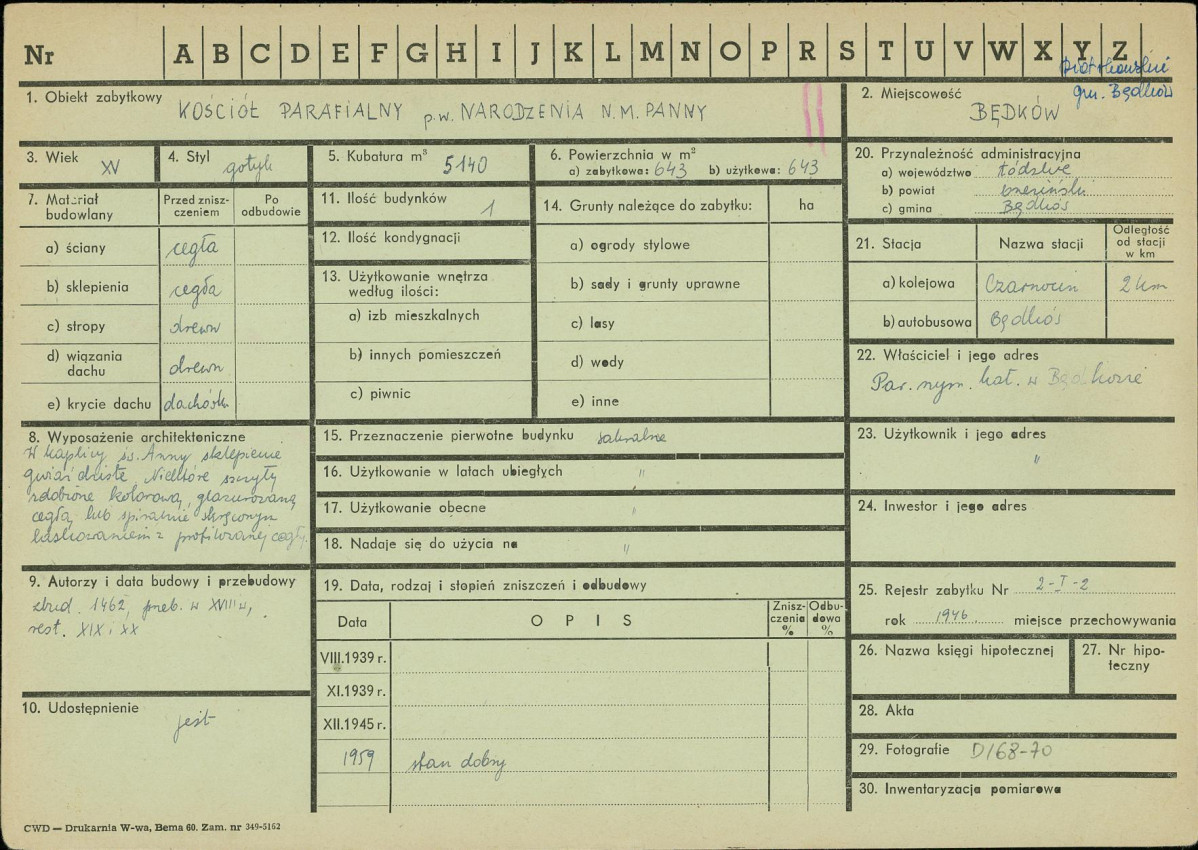 Nr A B C D E F G H I J K L M N O P R S T U V W X Y Z
Piotrkowski
gm. Będków
1. Obiekt zabytkowy KOŚCIÓŁ PARAFIALNY p.w. NARODZENIA N.M. PANNY
2. Miejscowość
BĘDKÓW
3. Wiek
XV
4. Styl
gotyk
5. Kubatura m³ 5140
6. Powierzchnia w m²
a) zabytkowa: 643 b) użytkowa: 643
20. Przynależność administracyjna
a) województwo łódzkie
b) powiat brzeziński
c) gmina Będków
7. Materiał budowlany
Przed zniszczeniem
Po odbudowie
a) ściany cegła
b) sklepienia cegła
c) stropy drewn
d) wiązania dachu drewn
e) krycie dachu dachówk
11. Ilość budynków 1
12. Ilość kondygnacji
13. Użytkowanie wnętrza
według ilości:
a) izb mieszkalnych
b) innych pomieszczeń
c) piwnic
14. Grunty należące do zabytku: ha
a) ogrody stylowe
b) sady i grunty uprawne
c) lasy
d) wody
e) inne
21. Stacja Nazwa stacji
Odległość
od stacji
w km
a) kolejowa Czarnocin 2 km
b) autobusowa Będków
22. Właściciel i jego adres
Par. rzym. kat. w Będkowie
8. Wyposażenie architektoniczne
W kaplicy św. Anny sklepienie
gwiaździste. Niektóre szczyty
zdobione kolorową, glazurowaną
cegłą lub spiralnie skręconym
laskowaniem z profilowanej cegły.
15. Przeznaczenie pierwotne budynku sakralne
16. Użytkowanie w latach ubiegłych "
17. Użytkowanie obecne "
18. Nadaje się do użycia na "
23. Użytkownik i jego adres
"
24. Inwestor i jego adres
9. Autorzy i data budowy i przebudowy
zbud. 1462, przeb. w XVIII w,
rest. XIX i XX
19. Data, rodzaj i stopień zniszczeń i odbudowy
Data OPIS
Zniszczenia %
Odbudowa %
VIII.1939 r.
XI.1939 r.
XII.1945 r.
1959 stan dobry
25. Rejestr zabytku Nr 2-I-2
rok 1946 miejsce przechowywania
26. Nazwa księgi hipotecznej
27. Nr hipoteczny
10. Udostępnienie
jest
28. Akta
29. Fotografie D/68-70
30. Inwentaryzacja pomiarowa
CWD — Drukarnia W-wa, Bema 60. Zam. nr 349-5162